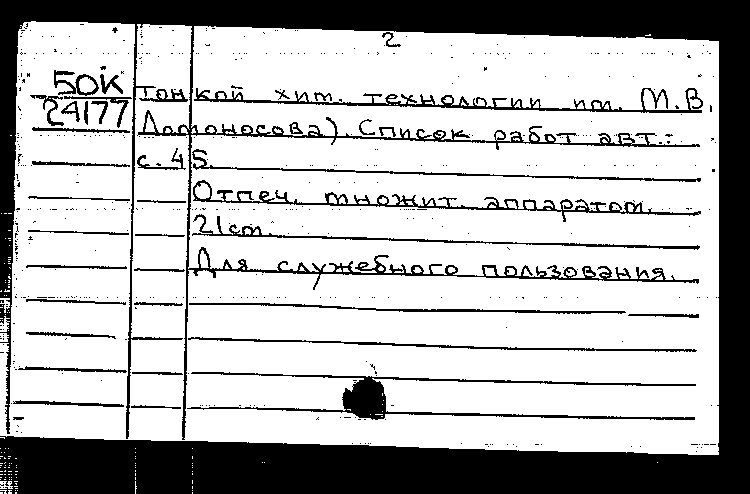 2
50К
24177
тонкой хим. технологии им. М.В.
Ломоносова). Список работ авт.:
с. 45.
Отпеч. множит. аппаратом.
21cm.
Для служебного пользования.